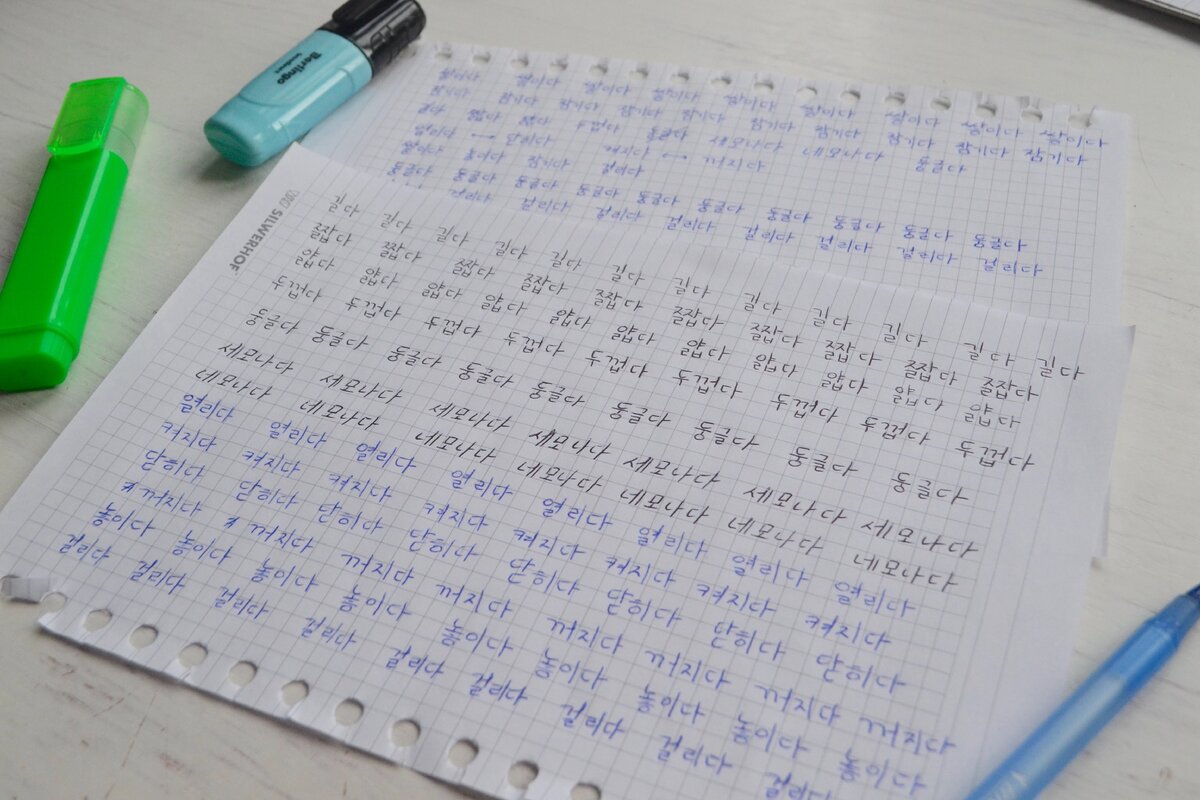 Berlingo
쌓이다 쌓이다 쌓이다 쌓이다 쌓이다 쌓이다 쌓이다 쌓이다 쌓이다
잠기다 잠기다 잠기다 잠기다 잠기다 잠기다 잠기다 잠기다 잠기다 잠기다
길다 짧다 얇다 두껍다 둥글다 세모나다 네모나다 둥글다
열리다 ↔ 닫히다 켜지다 ↔ 꺼지다
쌓이다 놓이다 잠기다 걸리다
둥글다 둥글다 둥글다 둥글다 둥글다 둥글다 둥글다 둥글다 둥글다 둥글다
걸리다 걸리다 걸리다 걸리다 걸리다 걸리다 걸리다 걸리다
SILWERHOF
길다 길다 길다 길다 길다 길다 길다 길다 길다 길다 길다 길다
짧다 짧다 짧다 짧다 짧다 짧다 짧다 짧다 짧다 짧다
얇다 얇다 얇다 얇다 얇다 얇다 얇다 얇다 얇다 얇다 얇다
두껍다 두껍다 두껍다 두껍다 두껍다 두껍다 두껍다 두껍다 두껍다
둥글다 둥글다 둥글다 둥글다 둥글다 둥글다 둥글다 둥글다 둥글다
세모나다 세모나다 세모나다 세모나다 세모나다 세모나다 세모나다
네모나다 네모나다 네모나다 네모나다 네모나다 네모나다 네모나다
열리다 열리다 열리다 열리다 열리다 열리다 열리다 열리다
켜지다 켜지다 켜지다 켜지다 켜지다 켜지다 켜지다 켜지다
닫히다 닫히다 닫히다 닫히다 닫히다 닫히다 닫히다 닫히다
꺼지다 꺼지다 꺼지다 꺼지다 꺼지다 꺼지다 꺼지다 꺼지다
놓이다 놓이다 놓이다 놓이다 놓이다 놓이다 놓이다 놓이다 놓이다
걸리다 걸리다 걸리다 걸리다 걸리다 걸리다 걸리다 걸리다 걸리다